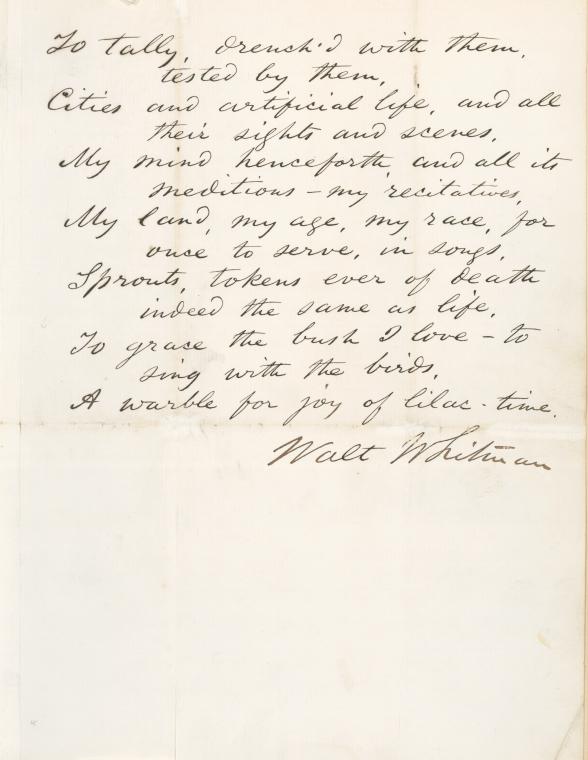 To tally, drench'd with them,
tested by them,
Cities and artificial life, and all
their sights and scenes,
My mind henceforth, and all its
meditious – my recitatives,
My land, my age, my race, for
once to serve, in songs,
Sprouts, tokens ever of death
indeed the same as life,
To grace the bush I love – to
sing with the birds,
A warble for joy of lilac-time.
Walt Whitman